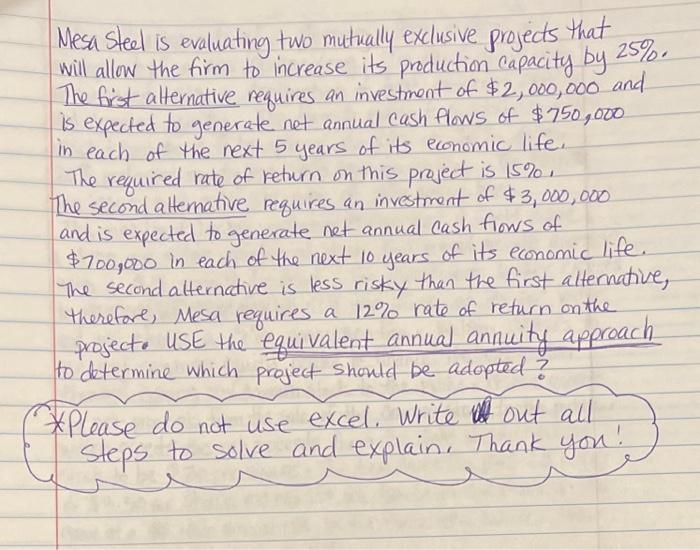 Mesa Steel is evaluating two mutually exclusive projects that
will allow the firm to increase its production capacity by 25%.
The first alternative requires an investment of $2,000,000 and
is expected to generate net annual cash flows of $750,000
in each of the next 5 years of its economic life.
The required rate of return on this project is 15%.
The second alternative requires an investment of $3,000,000
and is expected to generate net annual cash flows of
$700,000 in each of the next 10 years of its economic life.
The second alternative is less risky than the first alternative,
therefore, Mesa requires a 12% rate of return on the
project. USE the equivalent annual annuity approach
to determine which project should be adopted?
*Please do not use excel. Write out all
steps to solve and explain. Thank you!